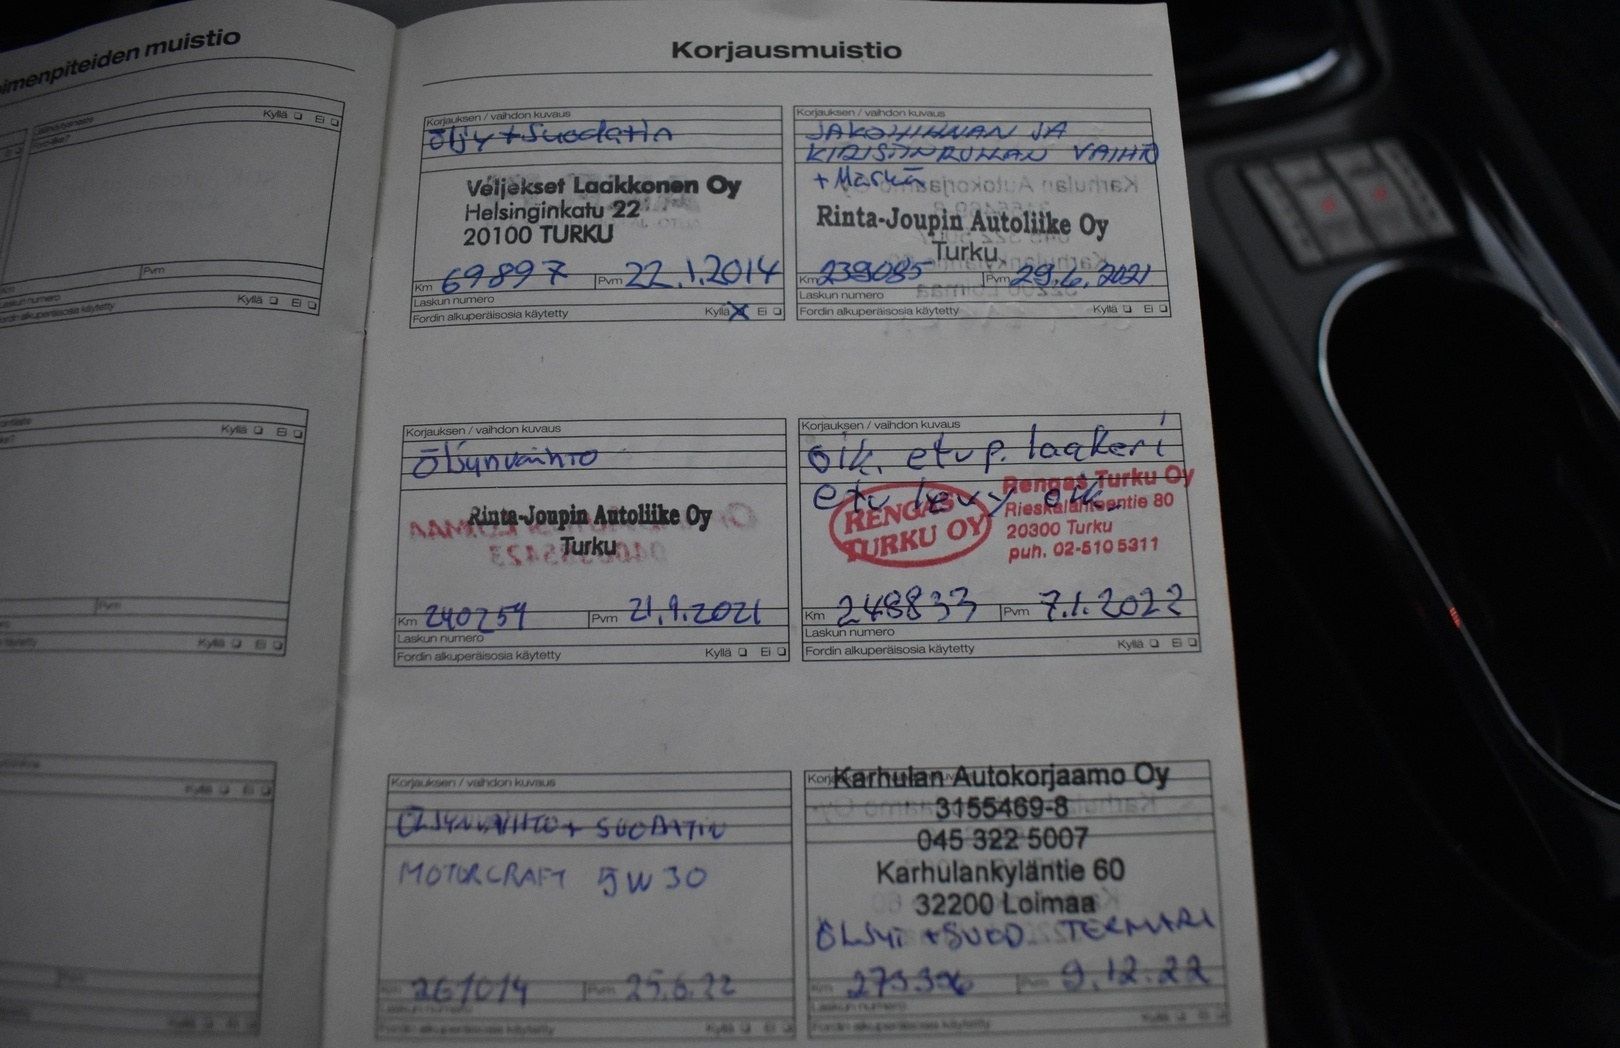 imenpiteiden muistio
Kyllä Ei
Pvm
Kyllä Ei
Kyllä Ei
Pvm
Kyllä Ei
Korjausmuistio
Korjauksen / vaihdon kuvaus
Öljy + Suodatin
Veljekset Laakkonen Oy
Helsinginkatu 22
20100 TURKU
Km 69897 Pvm 22.1.2014
Laskun numero
Fordin alkuperäisosia käytetty Kyllä X Ei
Korjauksen / vaihdon kuvaus
JAKOHIHNAN JA
KIRISTINRULLAN VAIHTO
+ Märkä
Rinta-Joupin Autoliike Oy
Turku
Km 239085 Pvm 29.6.2021
Laskun numero
Fordin alkuperäisosia käytetty Kyllä Ei
Korjauksen / vaihdon kuvaus
Öljynvaihto
Rinta-Joupin Autoliike Oy
Turku
Km 240259 Pvm 21.9.2021
Laskun numero
Fordin alkuperäisosia käytetty Kyllä Ei
Korjauksen / vaihdon kuvaus
oik. etup. laakeri
etu levy oik.
RENGAS
TURKU OY
Rengas Turku Oy
Rieskalähteentie 80
20300 Turku
puh. 02-510 5311
Km 248833 Pvm 7.1.2022
Laskun numero
Fordin alkuperäisosia käytetty Kyllä Ei
Korjauksen / vaihdon kuvaus
ÖLJYNVAIHTO + SUODATIN
MOTORCRAFT 5W30
Km 261014 Pvm 25.6.22
Laskun numero
Fordin alkuperäisosia käytetty Kyllä Ei
Karhulan Autokorjaamo Oy
3155469-8
045 322 5007
Karhulankyläntie 60
32200 Loimaa
ÖLJYT + SUOD. TEKMARI
Km 273396 Pvm 9.12.22
Laskun numero
Fordin alkuperäisosia käytetty Kyllä Ei